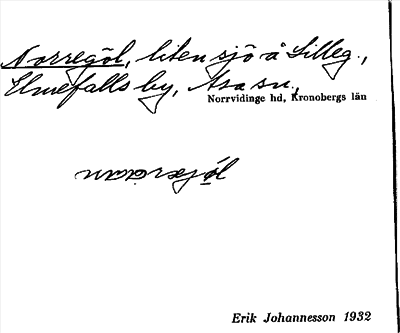 Norregöl, liten sjö å Lilleg.,
Elmefalls by, Asa sn.,
Norrvidinge hd, Kronobergs län
Erik Johannesson 1932